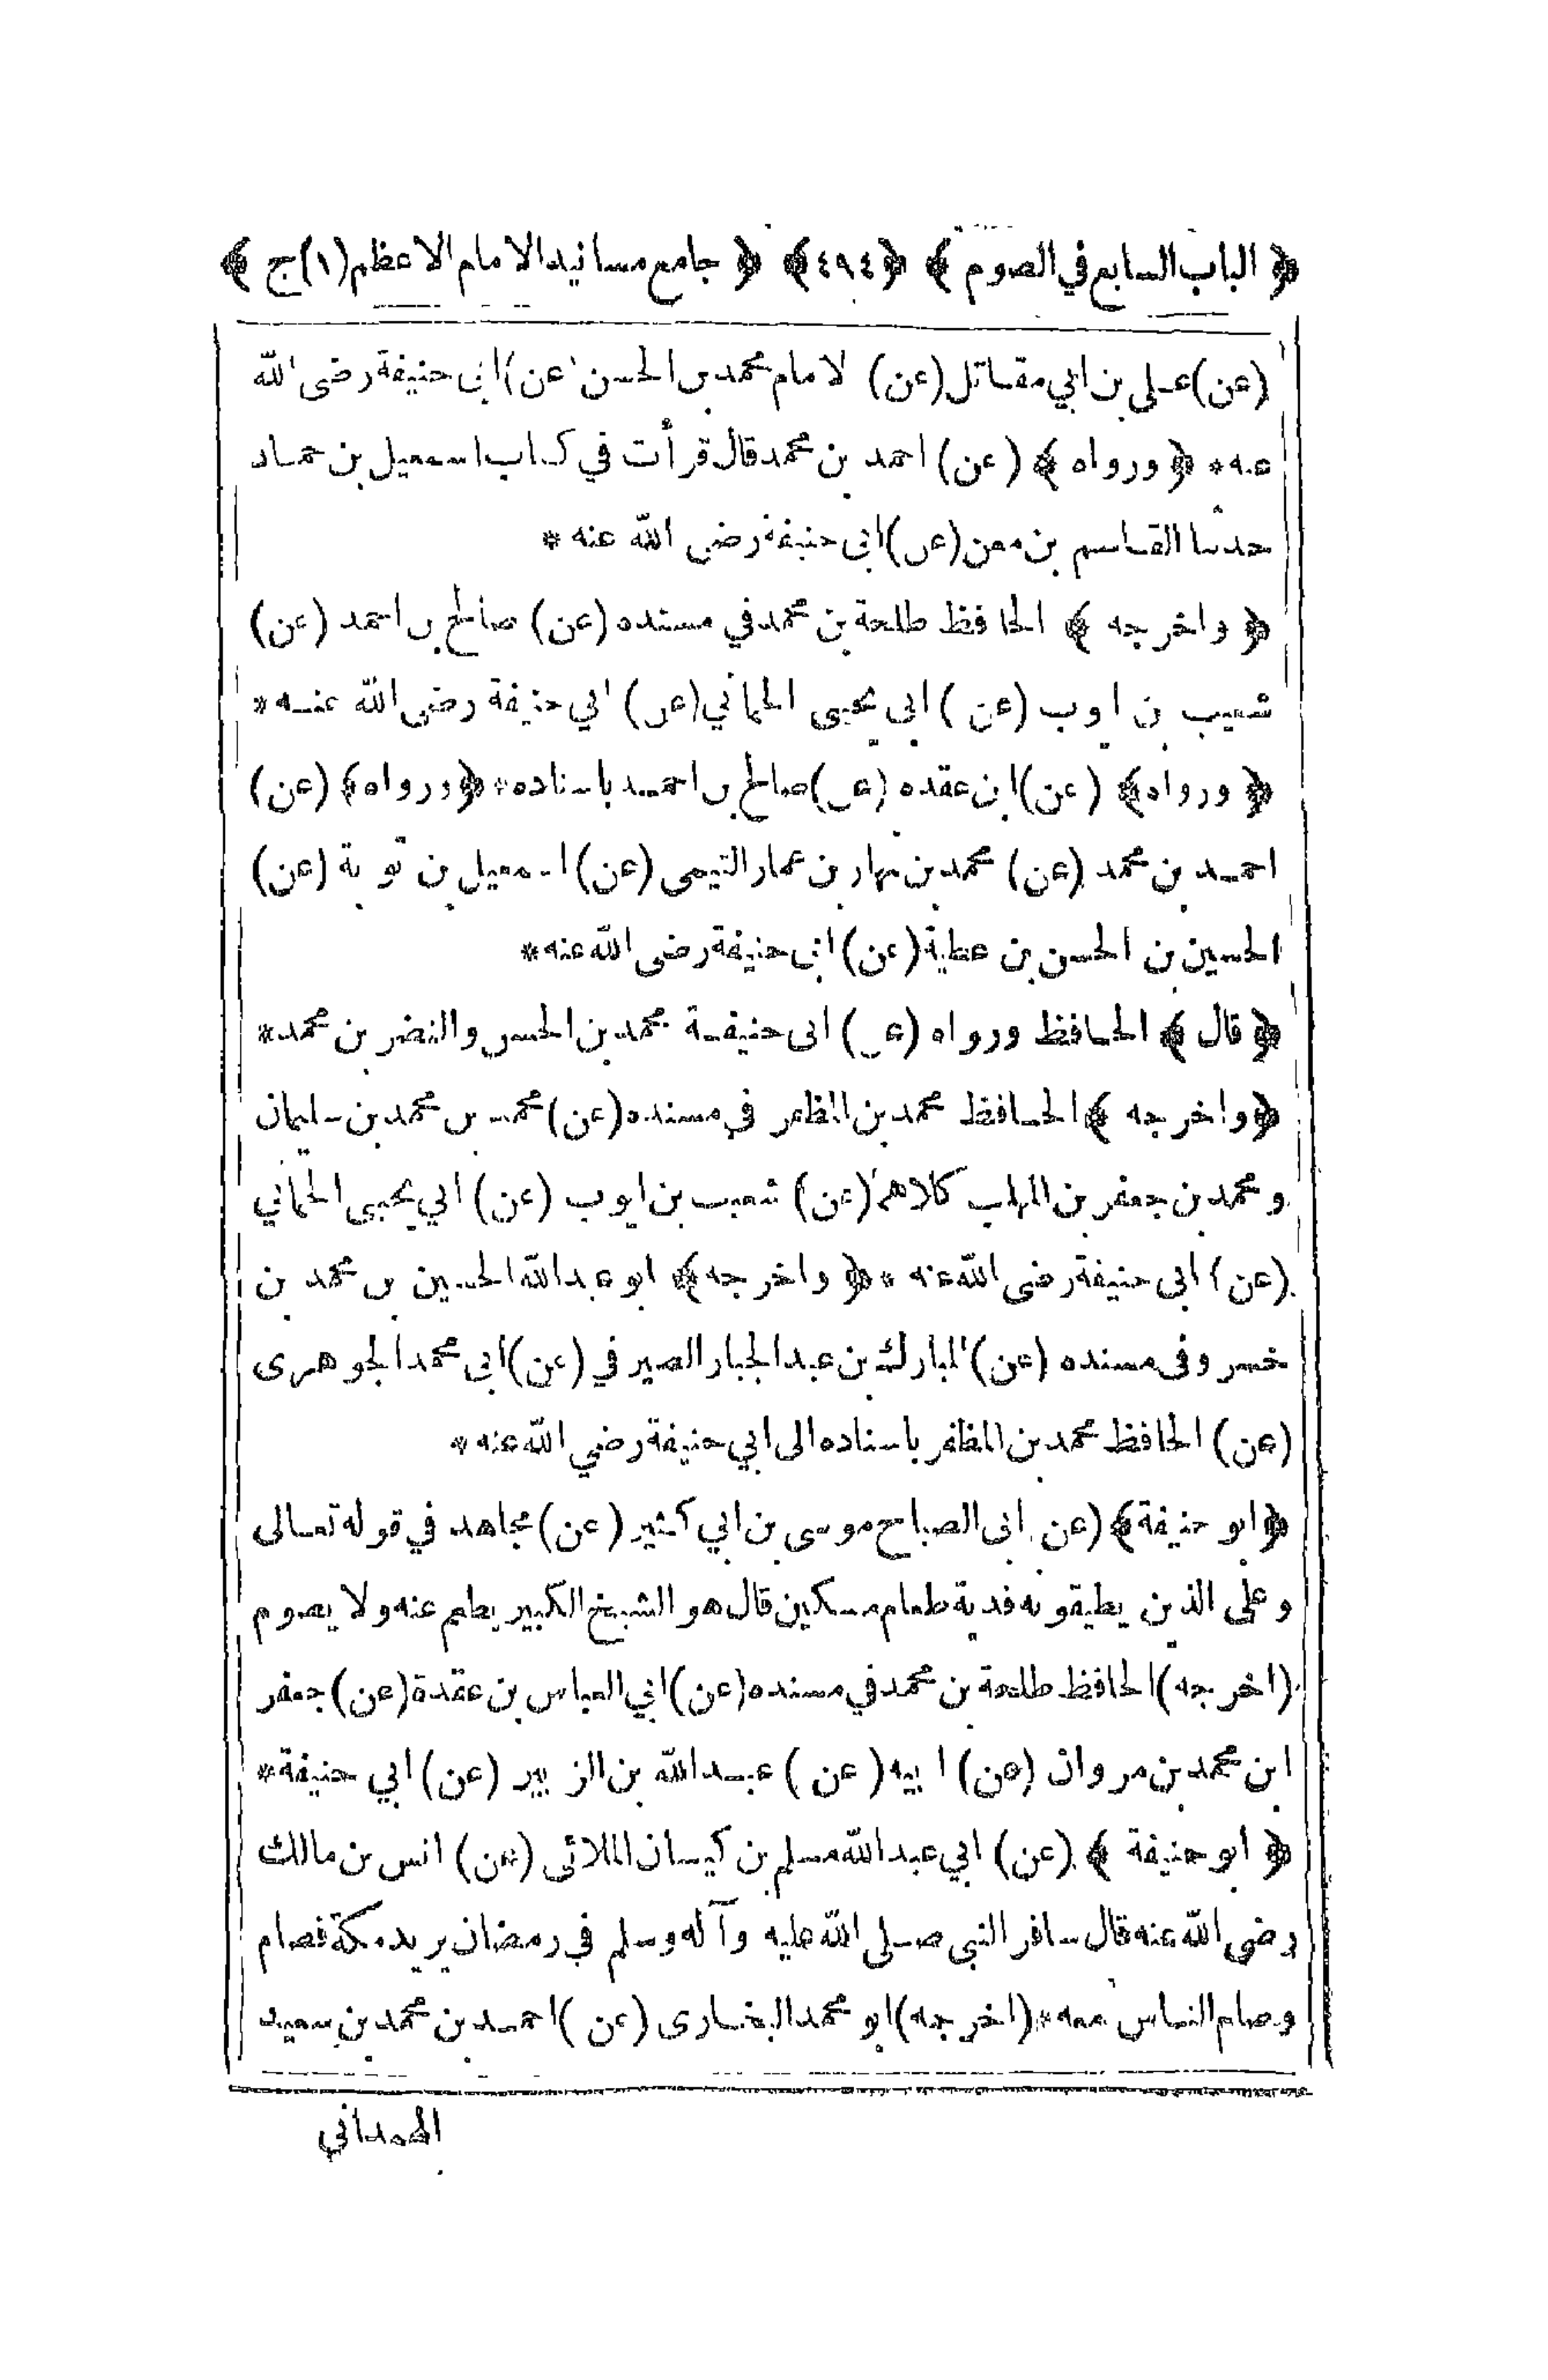 ﴿ الباب السابع في الصوم ﴾ ﴿٤٩٤﴾ ﴿ جامع مسانيد الامام الاعظم (١) ج ﴾
(عن) على بن ابي مقاتل (عن) الامام محمد بن الحسن (عن) ابى حنيفة رضى الله
عنه * ﴿ ورواه ﴾ (عن) احمد بن محمد قال قرأت في كتاب اسمعيل بن حماد
حدثنا القاسم بن معن (عن) ابى حنيفة رضى الله عنه *
﴿ واخرجه ﴾ الحافظ طلحة بن محمد في مسنده (عن) صالح بن احمد (عن)
شعيب بن ايوب (عن) ابى يحيى الحمانى (عن) ابي حنيفة رضى الله عنه *
﴿ ورواه ﴾ (عن) ابن عقده (عن) صالح بن احمد باسناده * ﴿ ورواه ﴾ (عن)
احمد بن محمد (عن) محمد بن نهار بن عمار التيمى (عن) اسمعيل بن توبة (عن)
الحسين بن الحسن بن عطية (عن) ابى حنيفة رضى الله عنه *
﴿ قال ﴾ الحافظ ورواه (عن) ابى حنيفة محمد بن الحسن والنضر بن محمد *
﴿ واخرجه ﴾ الحافظ محمد بن المظفر في مسنده (عن) محمد بن محمد بن سليمان
ومحمد بن جعفر بن المهلب كلاهما (عن) شعيب بن ايوب (عن) ابي يحيى الحمانى
(عن) ابى حنيفة رضى الله عنه * ﴿ واخرجه ﴾ ابو عبد الله الحسين بن محمد بن
خسرو فى مسنده (عن) المبارك بن عبد الجبار الصير في (عن) ابى محمد الجوهرى
(عن) الحافظ محمد بن المظفر باسناده الى ابي حنيفة رضي الله عنه *
﴿ ابو حنيفة ﴾ (عن) ابى الصباح موسى بن ابي كثير (عن) مجاهد في قوله تعالى
وعلى الذين يطيقونه فدية طعام مسكين قال هو الشيخ الكبير يطعم عنه ولا يصوم
(اخرجه) الحافظ طلحة بن محمد في مسنده (عن) ابي العباس بن عقدة (عن) جعفر
ابن محمد بن مروان (عن) ابيه (عن) عبد الله بن الزبير (عن) ابي حنيفة *
﴿ ابو حنيفة ﴾ (عن) ابي عبد الله مسلم بن كيسان الملائى (عن) انس بن مالك
رضى الله عنه قال سافر النبي صلى الله عليه وآله وسلم في رمضان يريد مكة فصام
وصام الناس معه * (اخرجه) ابو محمد البخارى (عن) احمد بن محمد بن سعيد
الهمدانى